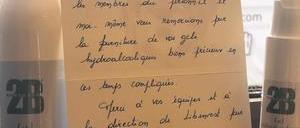 les membres du personnel et
moi-même vous remercions pour
la fourniture de vos gels
hydroalcooliques bien précieux en
ces temps compliqués.
Merci à vos équipes et à
la direction de
2B
2B